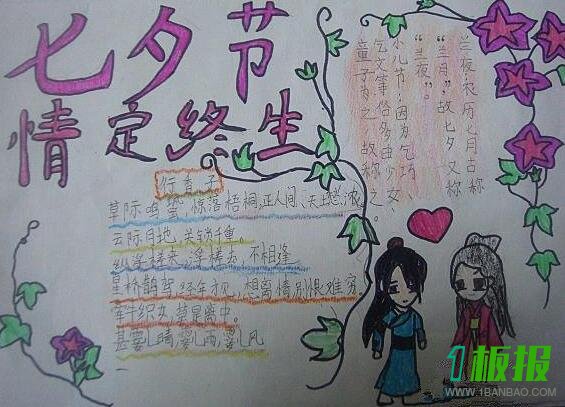 七夕节
情定终生
兰夜:农历七月古称
"兰月",故七夕又称
"兰夜"。
小儿节:因为乞巧、
乞文等俗多由少女、
童子为之,故称之。
行香子
草际鸣蛩,惊落梧桐,正人间、天上愁浓
云际月地,关锁千重。
纵浮槎来,浮槎去,不相逢
星桥鹊驾,经年才见,想离情别恨难穷
牵牛织女,莫是离中。
甚霎儿晴,霎儿雨,霎儿风
1板报
WWW.1BANBAO.COM